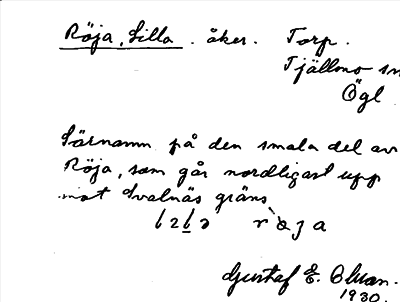 Röja, Lilla. åker. Torp.
Tjällmo sn
Ögl
Särnamn på den smala del av
Röja, som går nordligast upp
mot Svalnäs gräns
röja
Gustaf E. Olsson.
1930.